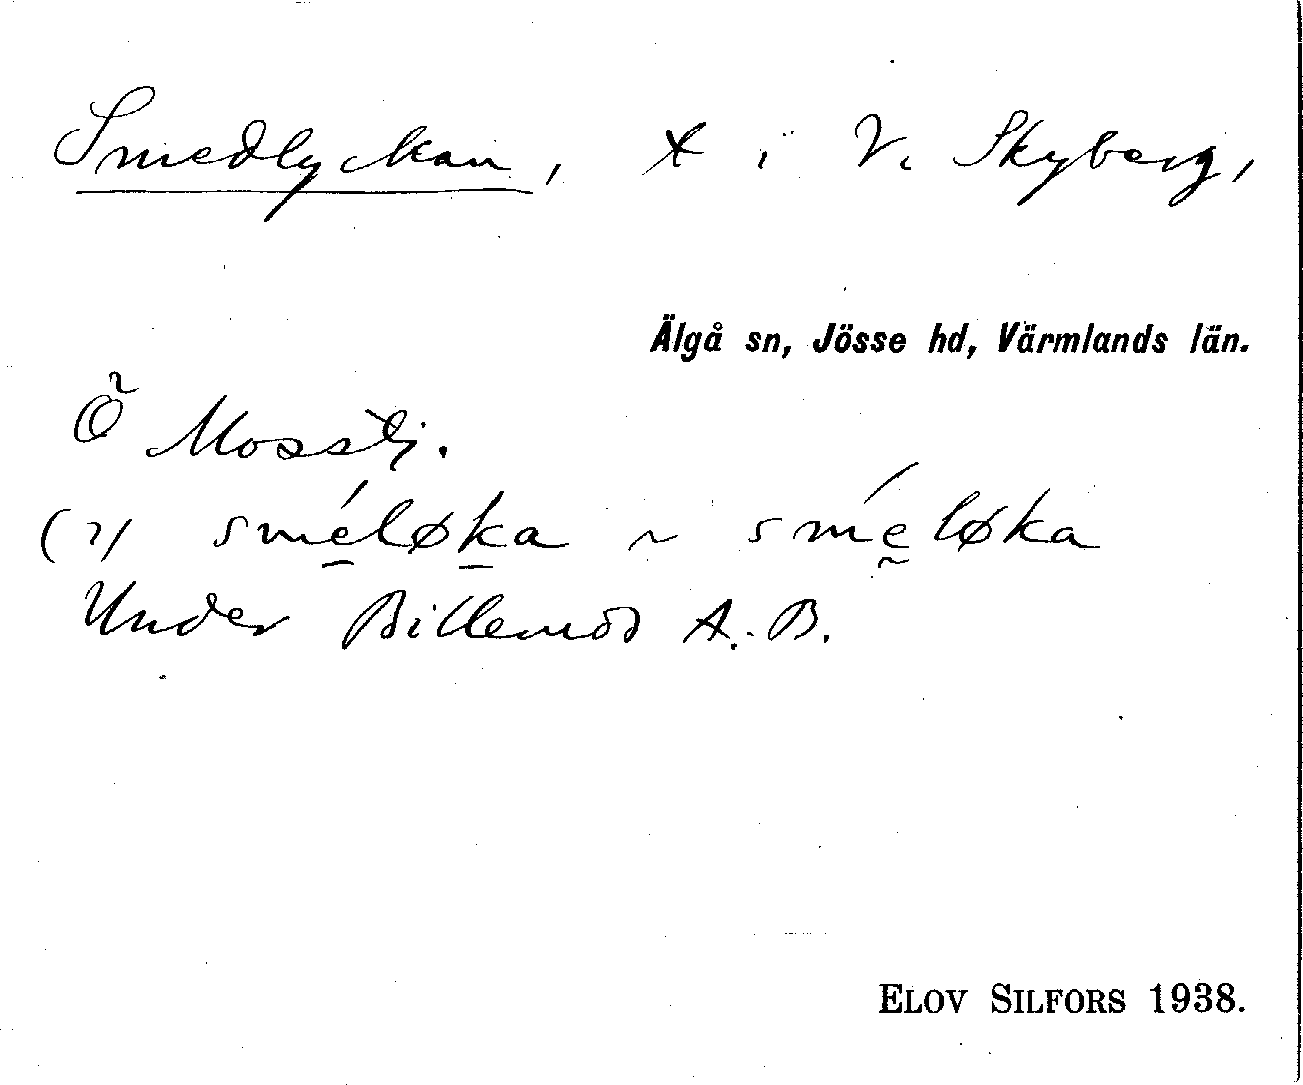 Smedlyckan, x i V. Skyberg,
Älgå sn, Jösse hd, Värmlands län.
Õ Mosstj.
(2) sméløka ~ sméløka
Under Billerud A.B.
ELOV SILFORS 1938.